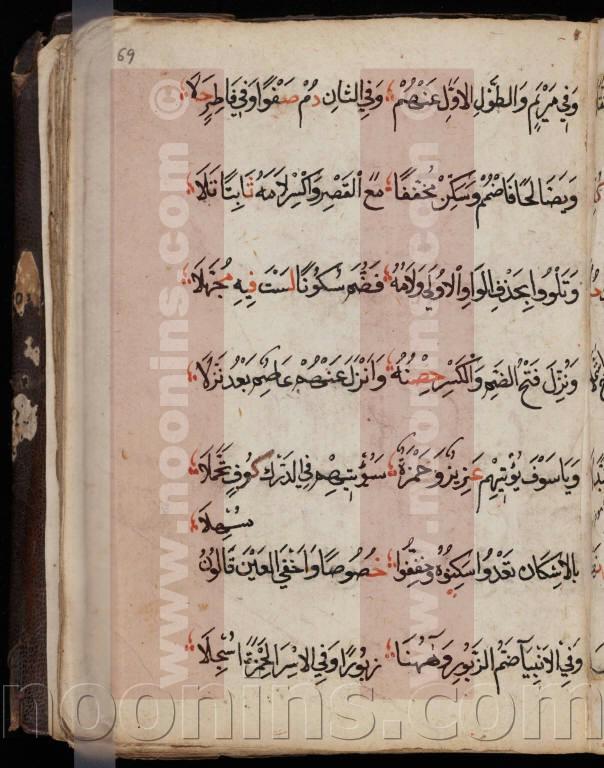 69
وَفِي مَرْيَمٍ وَالطَّوْلِ الاَوَّلِ عَنْهُمْ وَفِي الثَّانِ دُمْ صَفْوًا وَفِي فَاطِرٍ حَلَا
وَيَصَّالَحَا فَاضْمُمْ وَسَكِّنْ مُخَفِّفًا مَعَ الْقَصْرِ وَاكْسِرْ لَامَهُ ثَابِتًا تَلَا
وَتَلْوُوا بِحَذْفِ الْوَاوِ الْاُولَى وَلَامَهُ فَضُمَّ سُكُونًا لَسْتَ فِيهِ مُجَهَّلَا
وَنُزِّلَ فَتْحُ الضَّمِّ وَالْكَسْرِ حِصْنُهُ وَاَنْزَلَ عَنْهُمْ عَاصِمٌ بَعْدُ نَزَّلَا
وَيَا سَوْفَ يُؤْتِيهِمْ عَزِيزٌ وَحَمْزَةٌ سَيُؤْتِيهِمْ فِي الدَّرْكِ كُوفٍ تَحَمَّلَا
بِالْاِسْكَانِ تَعْدُوا سَكِّنُوهُ وَخَفِّفُوا خُصُوصًا وَاَخْفَى الْعَيْنَ قَالُونُ
مُسْهِلَا
وَفِي الْاَنْبِيَا ضَمُّ الزَّبُورِ وَهٰهُنَا زَبُورًا وَفِي الْاِسْرَا لِحَمْزَةَ اُسْجِلَا
www.noonins.com ©
www.noonins.com ©
noonins.com